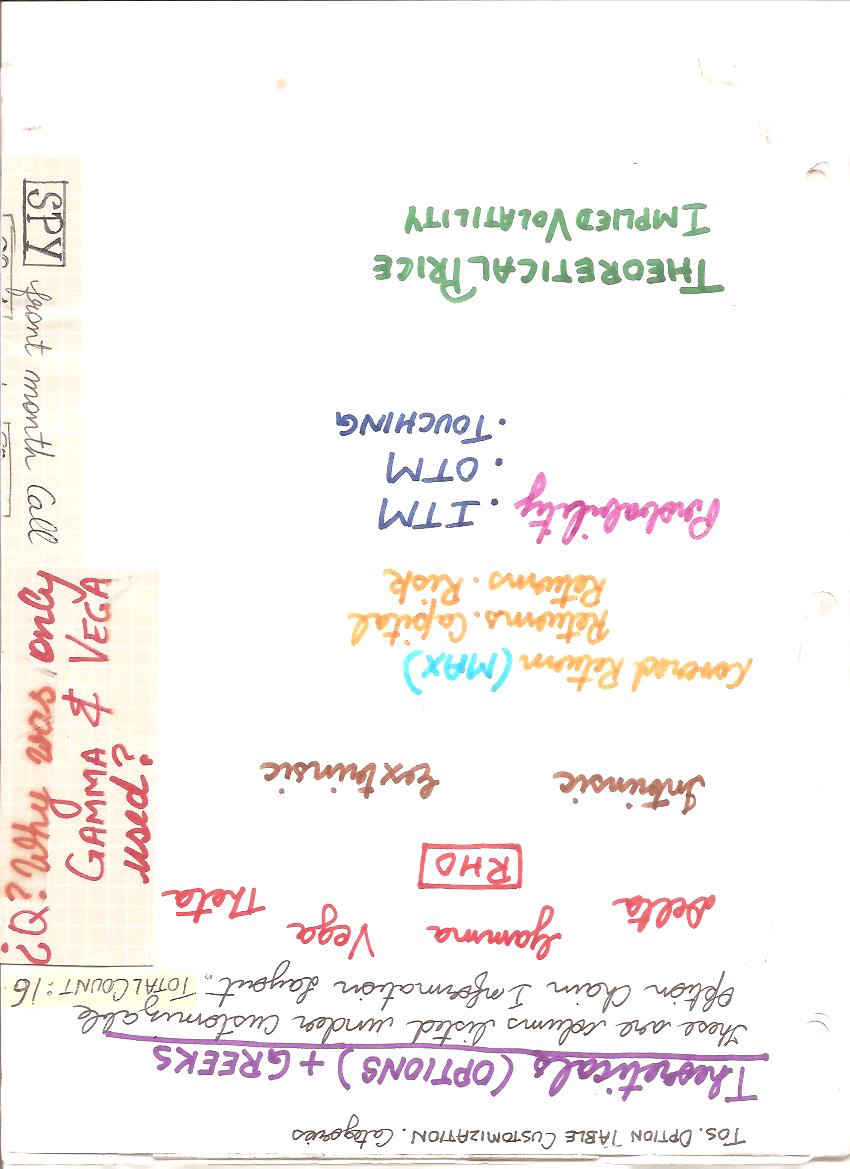 TOS. OPTION TABLE CUSTOMIZATION. Categories
Theoreticals (OPTIONS) + GREEKS
These are colums listed under customizable
Option Chain Information Layout. TOTAL COUNT: 16
Delta Gamma Vega Theta
RHO
Intrinsic Extrinsic
Covered Return (MAX)
Returns. Capital
Returns. Risk
Probability . ITM
. OTM
. TOUCHING
THEORETICAL PRICE
IMPLIED VOLATILITY
¿Q? Why was only
GAMMA & VEGA
used?
SPY front month Call